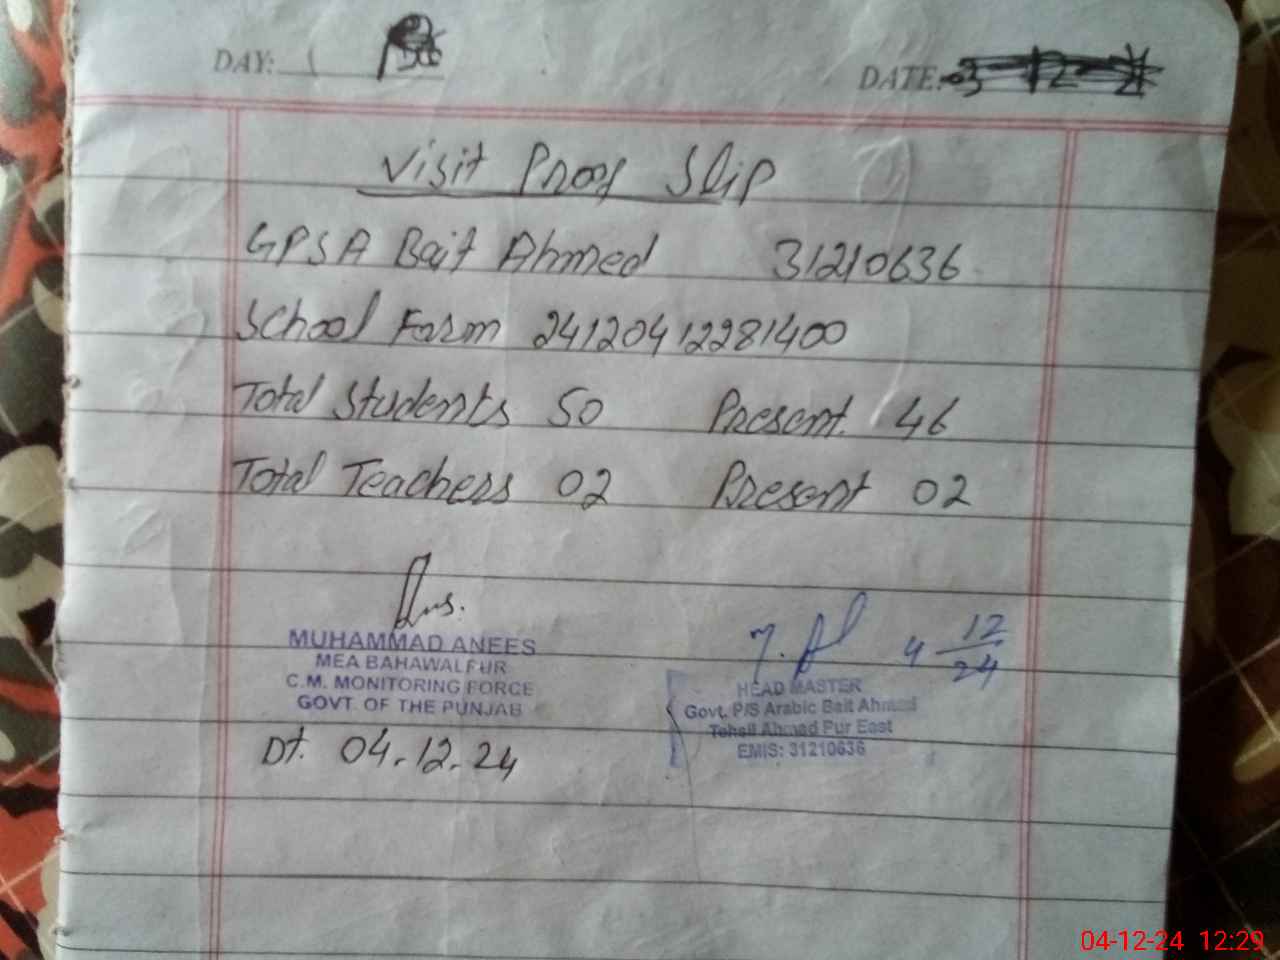 DAY:
DATE: 03-12-24
Visit Proof Slip
GPSA Bait Ahmed 31210636
School Form 24120412281400
Total Students 50 Present 46
Total Teachers 02 Present 02
MUHAMMAD ANEES
MEA BAHAWALPUR
C.M. MONITORING FORCE
GOVT. OF THE PUNJAB
Dt. 04.12.24
4 12/24
HEAD MASTER
Govt. P/S Arabic Bait Ahmad
Tehsil Ahmad Pur East
EMIS: 31210636
04-12-24 12:29